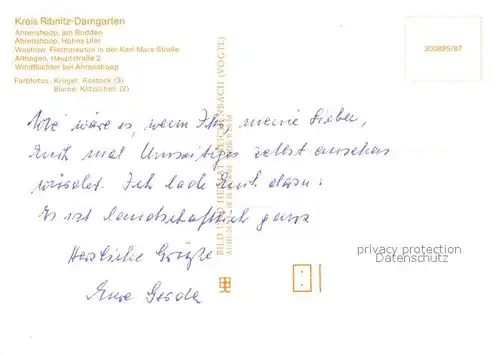 Kreis Ribnitz-Damgarten
Ahrenshoop, am Bodden
Ahrenshoop, Hohes Ufer
Wustrow, Fischerkaten in der Karl-Marx-Straße
Althagen, Hauptstraße 2
Windflüchter bei Ahrenshoop
Farbfotos: Krüger, Rostock (3)
Blume, Kittlitz
300895/87
Wie wäre es, wenn Ihr, meine Lieben,
Euch mal Umseitiges selbst ansehen
würdet. Ich lade Euch dazu
Es ist landschaftlich ganz
Herzliche Grüße
Eure Gerda
BILD UND HEIMAT REICHENBACH (VOGTL)
privacy protection
Datenschutz